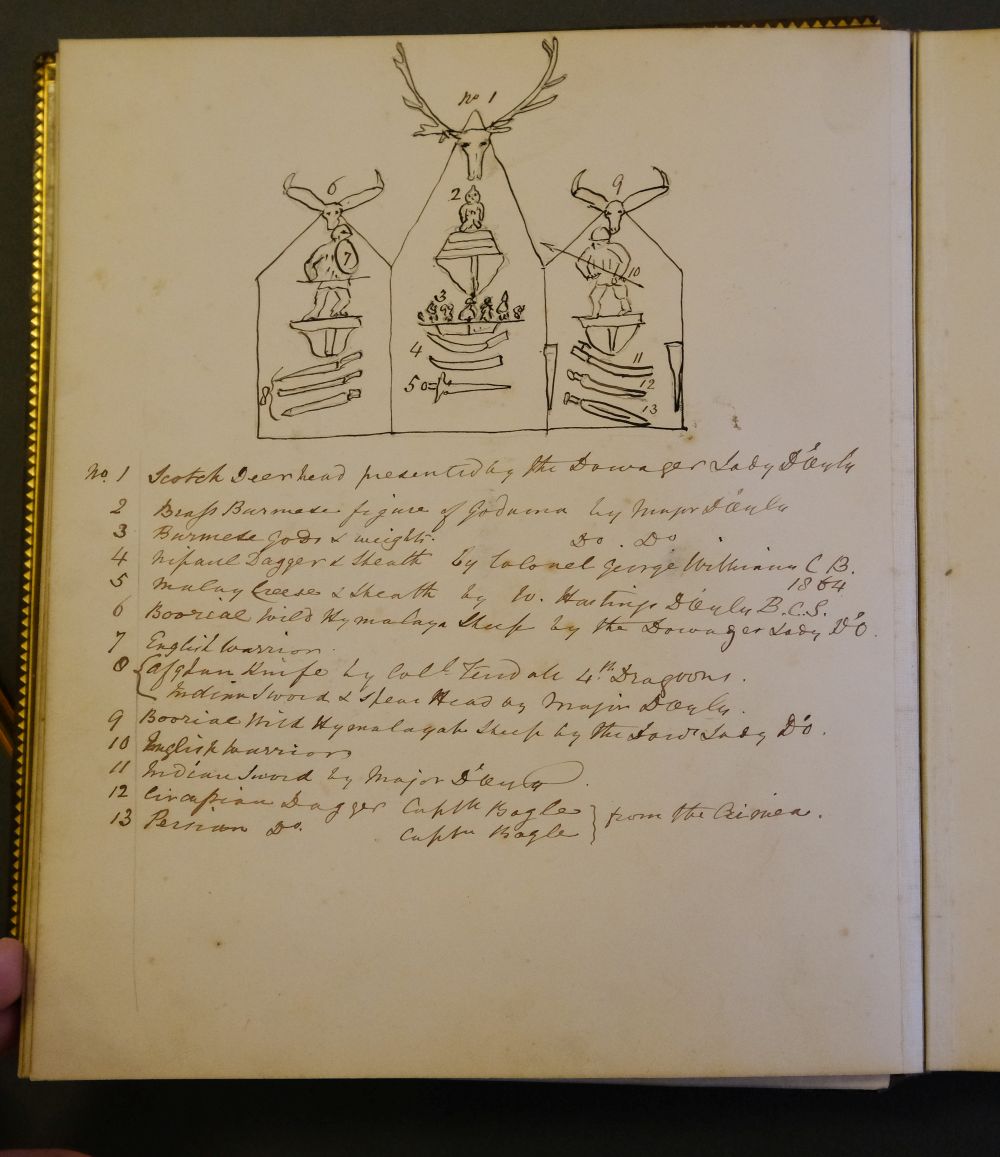 No 1
2
3
4
5
6
7
8
9
10
11
12
13
No. 1 Scotch Deerhead presented by the Dowager Lady D'Oyly
2 Brass Burmese figure of Godama by Major D'Oyly
3 Burmese Gods & weights. Do. Do
4 Nipaul Dagger & Sheath by Colonel George Williams C B.
1864
5 Malay Creese & Sheath by W. Hastings D'Oyly B.C.S.
6 Boorial Wild Hymalaya Sheep by the Dowager Lady DO.
7 English Warrior.
8 Afghan Knife by Coll. 4th Dragoons.
Indian Sword & Spear Head by Major D'Oyly.
9 Boorial Wild Hymalayah Sheep by the Dowr Lady DO.
10 English Warrior
11 Indian Sword by Major D'Oyly.
12 Circassian Dagger Captn Bogle
from the Crimea.
13 Persian Do. Captn Bogle